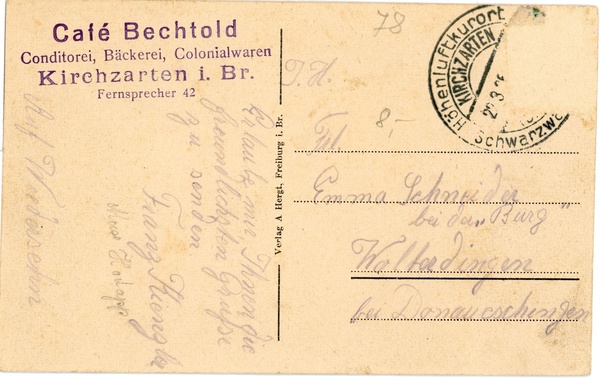 Café Bechtold
Conditorei, Bäckerei, Colonialwaren
Kirchzarten i. Br.
Fernsprecher 42
78
Höhenluftkurort
KIRCHZARTEN
Schwarzw
8,-
Verlag A Hergt, Freiburg i. Br.
Erlaube mir Ihnen die
freundlichsten Grüße
zu senden
Franz
Auf Wiedersehn
Frl.
Emma Schneider
bei der „Burg“
Wolterdingen
bei Donaueschingen